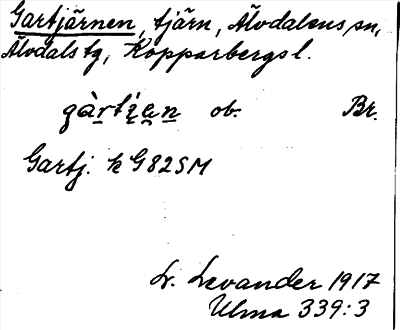 Gartjärnen, tjärn, Älvdalens sn,
Älvdals tg, Kopparbergs l.
ob. Br.
Gartj. k G82SM
L. Levander 1917
Ulma 339:3